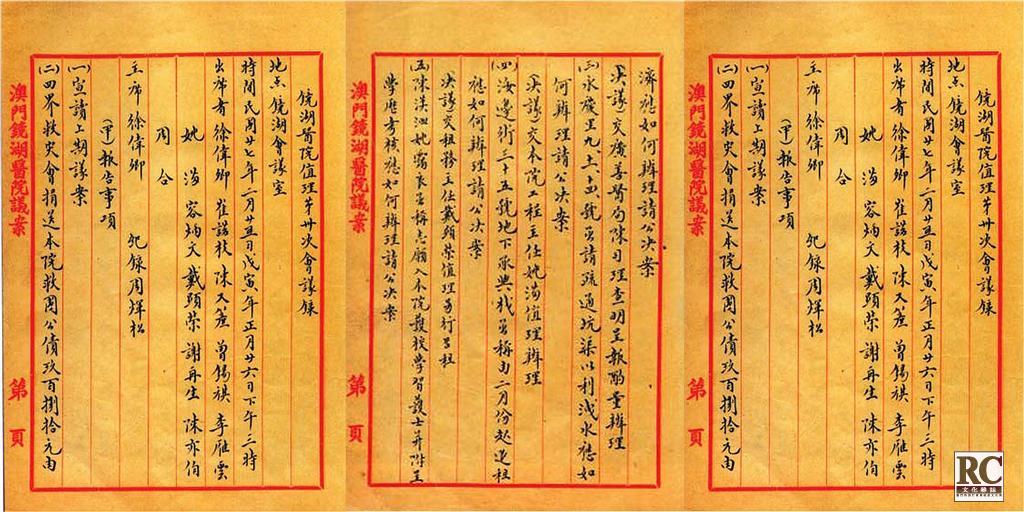 鏡湖醫院值理第卅次會議錄
地点 鏡湖會議室
時間 民國廿七年二月廿五日戊寅年正月廿六日下午三時
出席者 徐偉卿 崔諾枝 陳久 曾錫祺 李雁雲
姚滿 容炳文 戴顯榮 謝再生 陳亦伯
周合
主席 徐偉卿 紀錄周煇松
(甲)報告事項
(一)宣讀上期議案
(二)四界救災會捐送本院救國公債玖百捌拾元由
澳門鏡湖醫院議案
第 頁
濟應如何辦理請公決案
決議 交廣善醫局陳司理查明呈報酌量辦理
(三)永慶里九 十四號 請疏通坑渠以利洩水應如
何辦理請公決案
決議 交本院工程主任姚滿值理辦理
(四) 邊街三十五號地下承典 稱由二月份起 租
應如何辦理請公決案
決議 交租務主任戴顯榮值理 行 租
(五)陳漢 稱志願入本院護校學習護士并附呈
學歷 應如何辦理請公決案
澳門鏡湖醫院議案
第 頁
鏡湖醫院值理第卅次會議錄
地点 鏡湖會議室
時間 民國廿七年二月廿五日戊寅年正月廿六日下午三時
出席者 徐偉卿 崔諾枝 陳久 曾錫祺 李雁雲
姚滿 容炳文 戴顯榮 謝再生 陳亦伯
周合
主席 徐偉卿 紀錄周煇松
(甲)報告事項
(一)宣讀上期議案
(二)四界救災會捐送本院救國公債玖百捌拾元由
澳門鏡湖醫院議案
第 頁
RC
文化雜誌